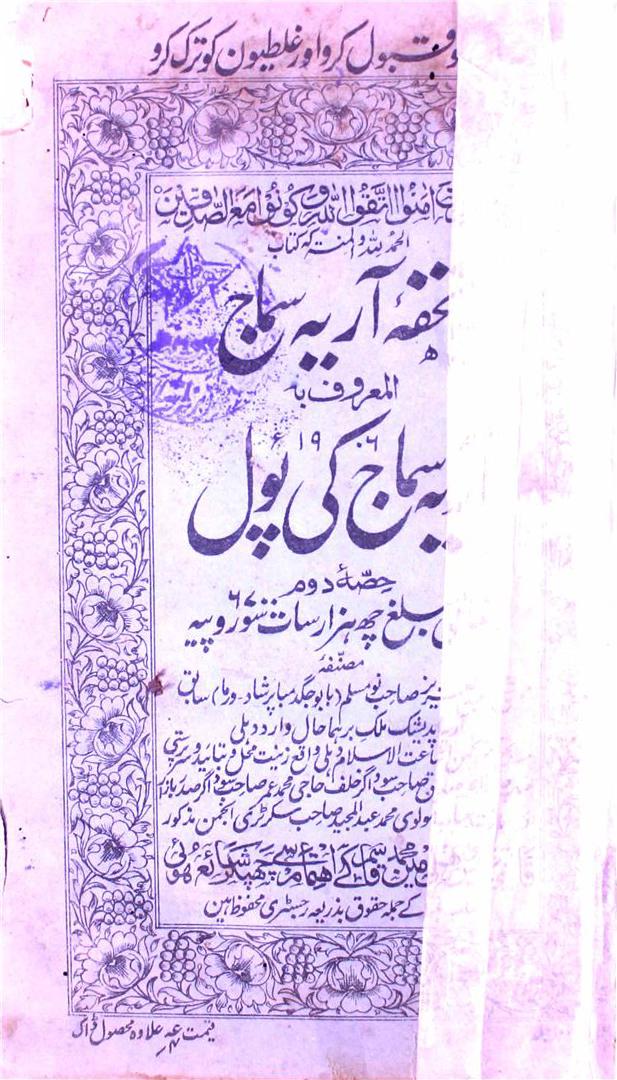 قبول کرو اور غلطیون کو ترک کرو
اٰمنوا اتقوا اللہ و کونوا مع الصّٰدقین
الحمد للہ و المنۃ کہ کتاب
تحفۂ آریہ سماج
المعروف بہ
۱۹۰۶ء
یہ سماج کی پول
حصّۂ دوم
مبلغ چھ ہزار سات سو روپیہ ۶۷۰۰
مصنّفہٗ
صاحب نو مسلم (بابو جگدمبا پرشاد۔ ورما) سابق
اپدیشک ملک برہما حال وارد دہلی
اعت الاسلام دہلی واقع زینت محل و بتائید و سرپرستی
صاحب سوداگر خلف حاجی محمد عمر صاحب سوداگر صدر بازار
مولوی محمد عبد المجید صاحب سکرٹری انجمن مذکور
مین محمد قاسم کے اہتمام سے چھپکر شائع ہوئی
کے جملہ حقوق بذریعہ رجسٹری محفوظ ہین
قیمت علاوہ محصول ڈاک